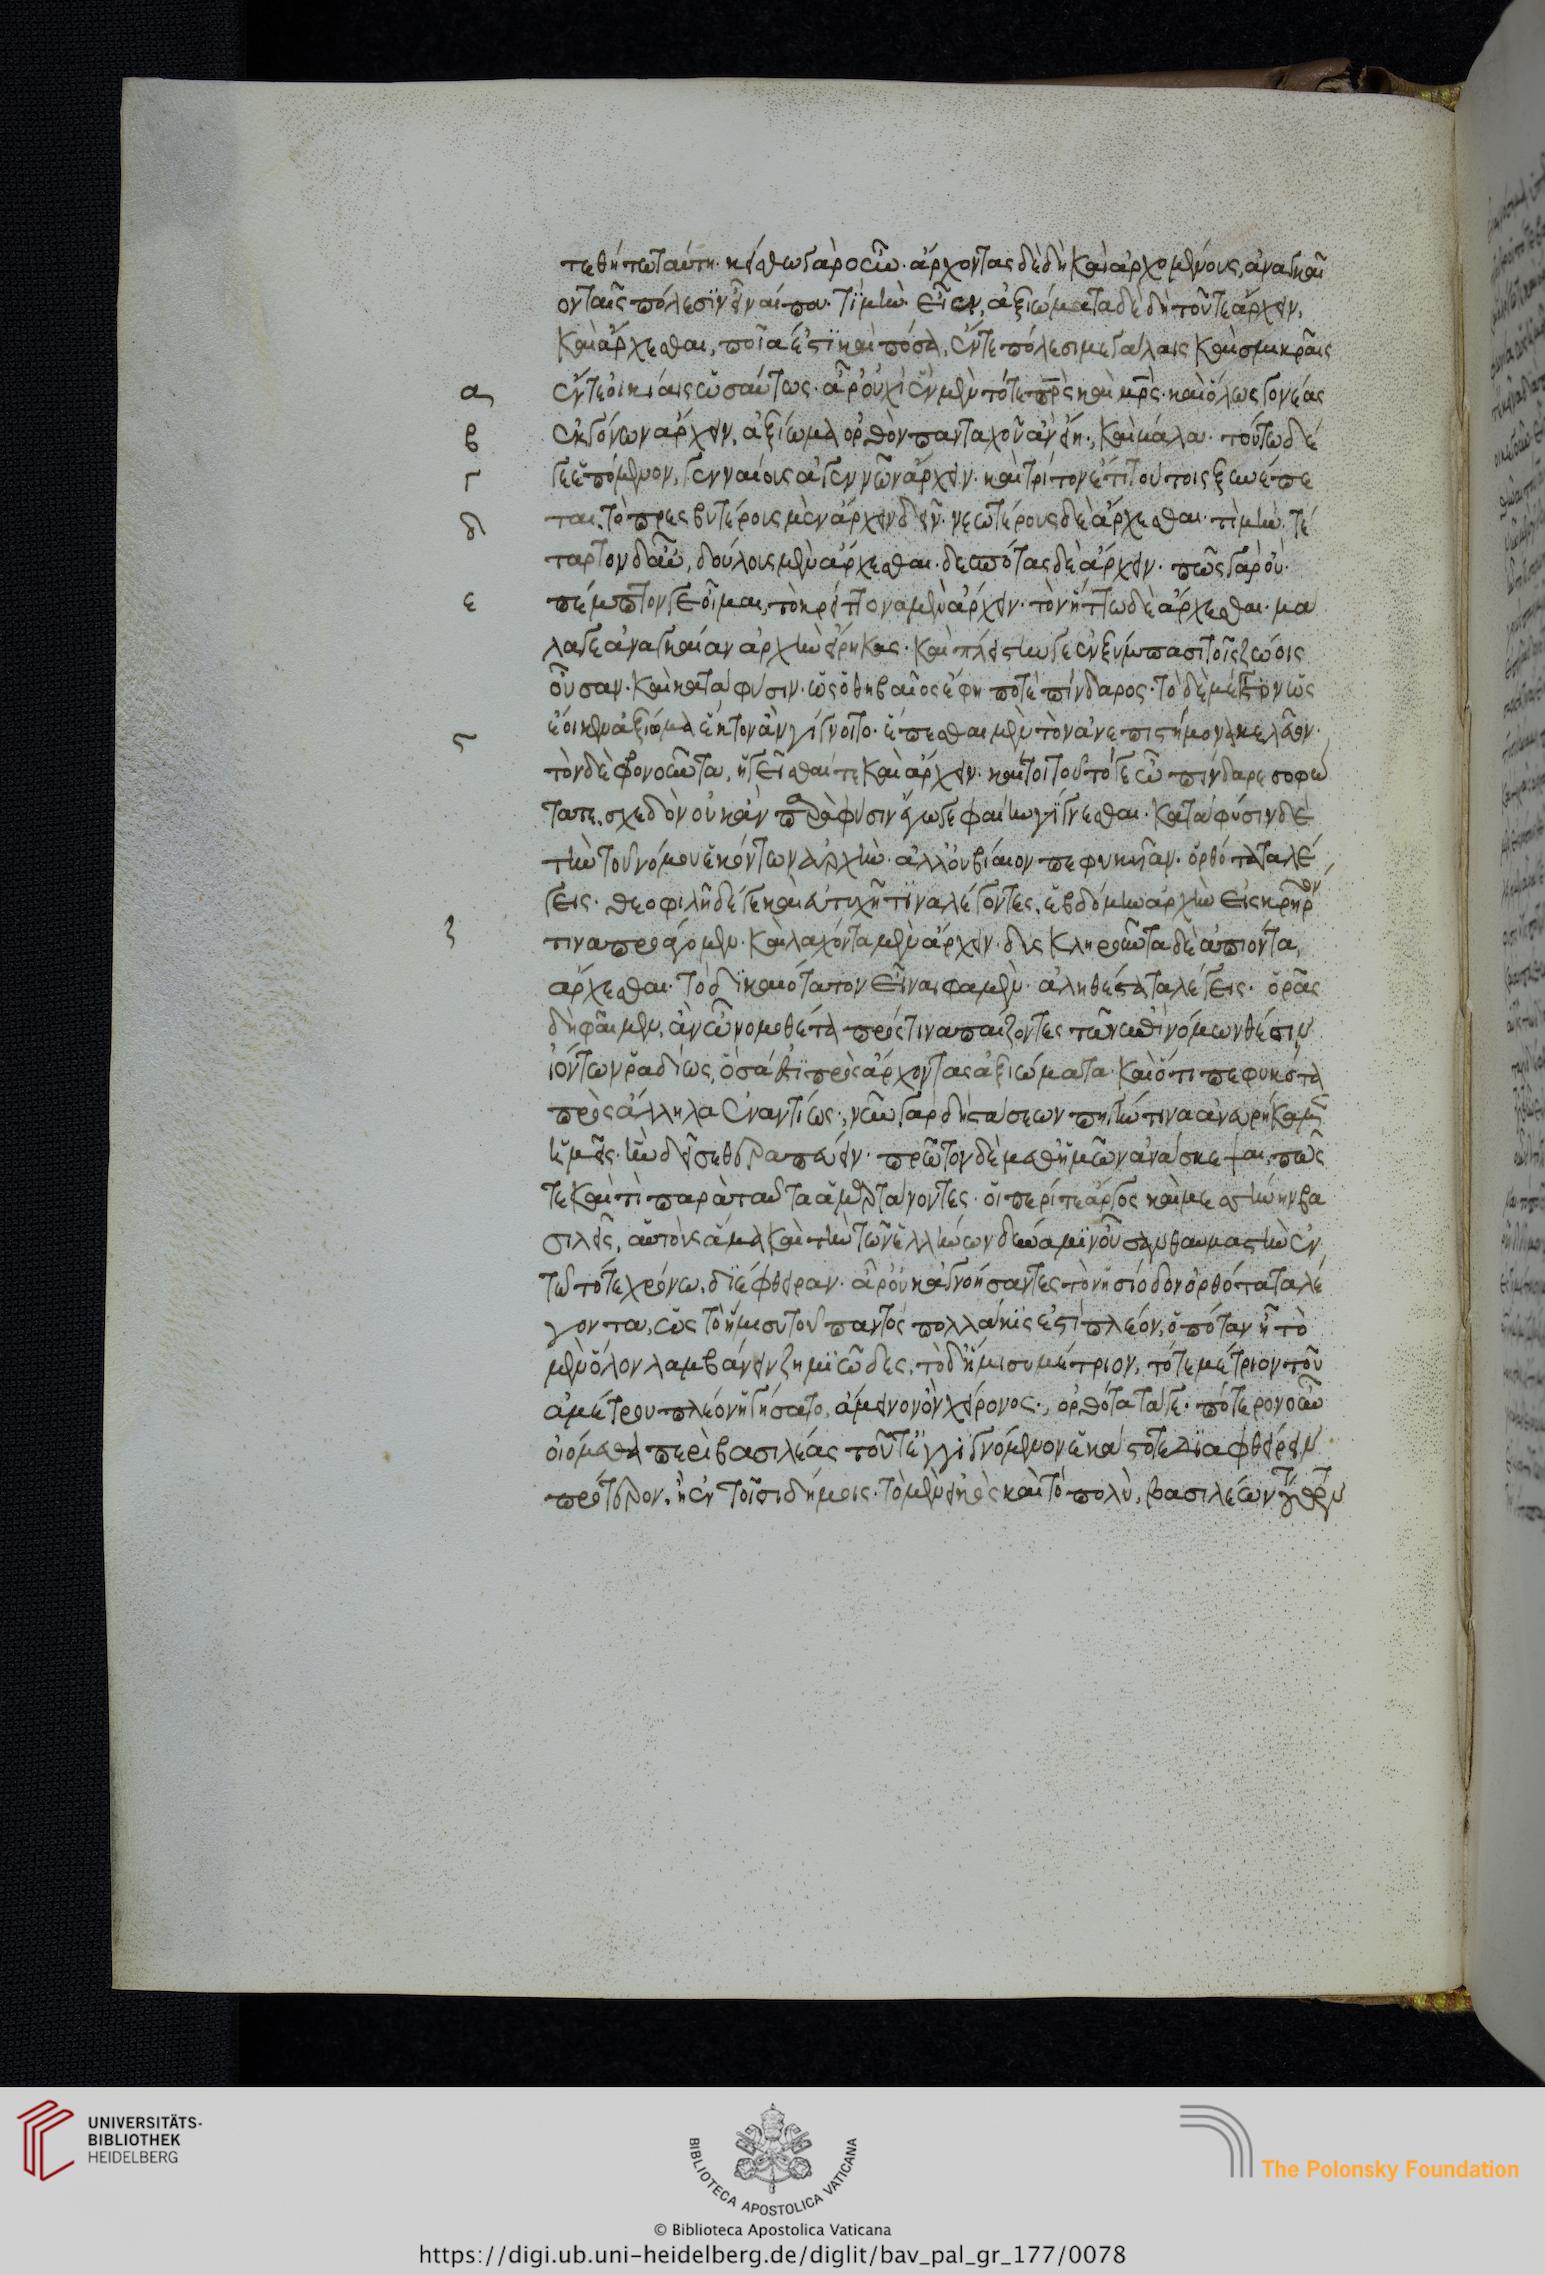 τεθήτω ταύτη. κείσθω γὰρ οὖν. ἄρχοντας δὲ δὴ καὶ ἀρχομένους, ἀναγκαῖ
ον ταῖς πόλεσιν εἶναί που. τί μήν. εἶεν, ἀξιώματα δὲ δὴ τοῦ τε ἄρχειν,
καὶ ἄρχεσθαι, ποῖα ἐστι καὶ πόσα, ἔν τε πόλεσι μεγάλαις καὶ σμικραῖς
α ἔν τε οἰκίαις ὡσαύτως. ἆρ' οὐχὶ ἓν μὲν τό τε πρς καὶ μρς. καὶ ὅλως γονέας
β ἐκγόνων ἄρχειν, ἀξίωμα ὀρθὸν πανταχοῦ ἂν εἴη., καὶ μάλα. τούτω δέ
γ γε ἑπόμενον, γενναίους ἀγεννῶν ἄρχειν. καὶ τρίτον ἔτι τούτοις ξυνέπε
δ ται, τὸ πρεσβυτέρους μὲν ἄρχειν δεῖν. νεωτέρους δὲ ἄρχεσθαι. τί μήν. τέ
ταρτον δ' αὖ, δούλους μὲν ἄρχεσθαι. δεσπότας δὲ ἄρχειν. πῶς γὰρ οὔ.
ε πέμπτον γε οἶμαι, τὸ κρείττονα μὲν ἄρχειν. τὸν ἥττω δὲ ἄρχεσθαι. μά
λα γε ἀναγκαίαν ἀρχὴν εἴρηκας. καὶ πλείστην γε ἐν ξύμπασι τοῖς ζώοις
οὖσαν. καὶ κατὰ φύσιν. ὡς ὁ θηβαῖος ἔφη ποτὲ πίνδαρος. τὸ δὲ μέγιστον ὡς
ἔοικεν ἀξίωμα ἕκτον ἂν γίγνοιτο. ἕπεσθαι μὲν τὸν ἀνεπιστήμονα κελεῦον.
ϛ τὸν δὲ φρονοῦντα, ἡγεῖσθαί τε καὶ ἄρχειν. καί τοι τοῦτό γε ὦ πίνδαρε σοφώ
τατε, σχεδὸν οὐκ ἂν παρὰ φύσιν ἔγωγε φαίην γίγνεσθαι. κατὰ φύσιν δὲ
τὴν τοῦ νόμου ἑκόντων ἀρχὴν. ἀλλ' οὐ βίαιον πεφυκυῖαν. ὀρθότατα λέ
γεις. θεοφιλῆ δέ γε καὶ εὐτυχῆ τινα λέγοντες, ἑβδόμην ἀρχὴν εἰς κλῆρον
ζ τινα προάγομεν. καὶ λαχόντα μὲν ἄρχειν. δυσκληροῦντα δὲ ἀπιόντα,
ἄρχεσθαι. τὸ δικαιότατον εἶναι φαμὲν. ἀληθέστατα λέγεις. ὁρᾶς
δὴ φαῖμεν, ἂν ὦ νομοθέτα πρός τινα παίζοντες τῶν ἐπὶ νόμων θέσιν
ἰόντων ῥαδίως, ὅσα ἐστὶ πρὸς ἄρχοντας ἀξιώματα. καὶ ὅτι πεφυκότα
πρὸς ἄλληλα ἐναντίως., νῦν γὰρ δὴ στάσεων πηγήν τινα ἀνευρήκαμεν
ἡμεῖς. ἣν δεῖ σε θεραπεύειν. πρῶτον δὲ μεθ' ἡμῶν ἀνάσκεψαι, πῶς
τε καὶ τί παρὰ ταῦτα ἁμαρτάνοντες. οἱ περί τε ἄργος καὶ μεσσήνην βα
σιλεῖς, αὑτοὺς ἅμα καὶ τὴν τῶν ἑλλήνων δύναμιν οὖσαν θαυμαστὴν ἐν
τῶ τότε χρόνω, διέφθειραν. ἆρ' οὐκ ἀγνοήσαντες τὸν ἡσίοδον ὀρθότατα λέ
γοντα, ὡς τὸ ἥμισυ τοῦ παντὸς πολλάκις ἐστὶ πλέον, ὁπόταν ᾖ τὸ
μὲν ὅλον λαμβάνειν ζημιῶδες, τὸ δ' ἥμισυ μέτριον, τότε μέτριον τοῦ
ἀμέτρου πλέον ἡγήσατο, ἄμεινον ὂν χείρονος., ὀρθότατά γε. πότερον οὖν
οἰόμεθα περὶ βασιλέας τοῦτ' ἐγγιγνόμενον ἑκάστοτε διαφθείρειν
πρότερον, ἢ ἐν τοῖσι δήμοις. τὸ μὲν εἰκὸς καὶ τὸ πολὺ, βασιλέων
UNIVERSITÄTS-
BIBLIOTHEK
HEIDELBERG
BIBLIOTECA APOSTOLICA VATICANA
© Biblioteca Apostolica Vaticana
The Polonsky Foundation
https://digi.ub.uni-heidelberg.de/diglit/bav_pal_gr_177/0078